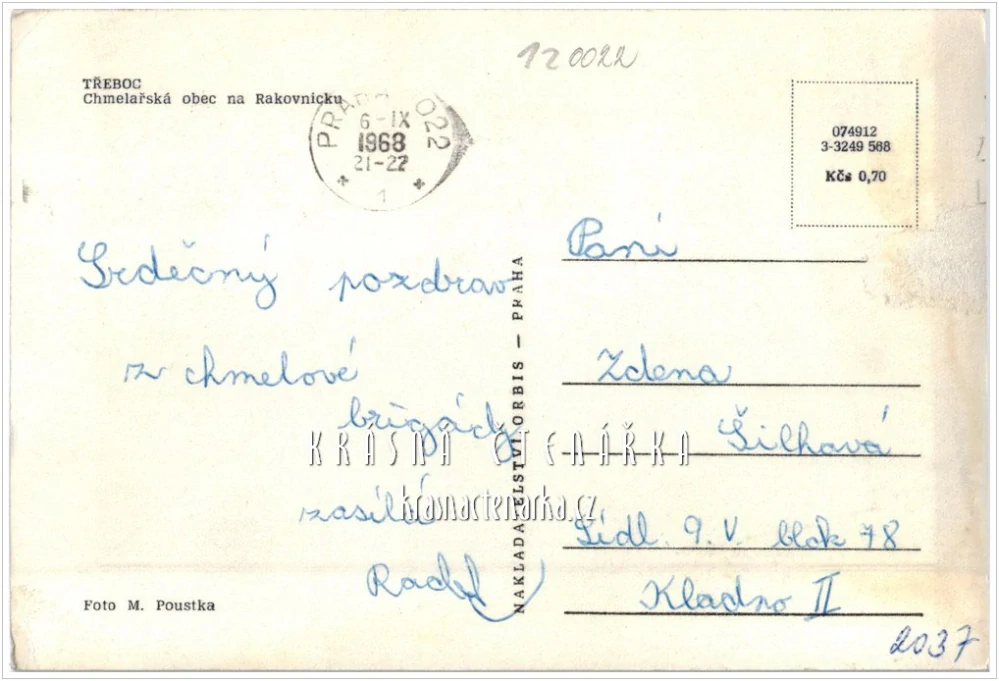 120022
TŘEBOC
Chmelařská obec na Rakovnicku
PRAHA 022
6-IX
1968
21-22
1
074912
3-3249 568
Kčs 0,70
Srdečný pozdrav
z chmelové
brigády
zasílá
NAKLADATELSTVÍ ORBIS — PRAHA
Paní
Zdena
Šilhavá
Sídl. 9. V. blok 78
Kladno II
KRÁSNÁ ČTENÁŘKA
krasnactenarka.cz
Foto M. Poustka
2037